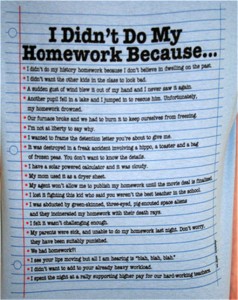 I Didn't Do My
Homework Because...
• I didn't do my history homework because I don't believe in dwelling on the past.
• I didn't want the other kids in the class to look bad.
• A sudden gust of wind blew it out of my hand and I never saw it again.
• Another pupil fell in a lake and I jumped in to rescue him. Unfortunately,
my homework drowned.
• Our furnace broke and we had to burn it to keep ourselves from freezing.
• I'm not at liberty to say why.
• I wanted to frame the detention letter you're about to give me.
• It was destroyed in a freak accident involving a hippo, a toaster and a bag
of frozen peas. You don't want to know the details.
• I have a solar powered calculator and it was cloudy.
• My mom used it as a dryer sheet.
• My agent won't allow me to publish my homework until the movie deal is finalized.
• I lost it fighting this kid who said you weren't the best teacher in the school.
• I was abducted by green-skinned, three-eyed, pig-snouted space aliens
and they incinerated my homework with their death rays.
• I felt it wasn't challenging enough.
• My parents were sick, and unable to do my homework last night. Don't worry,
they have been suitably punished.
• We had homework!!!
• I see your lips moving but all I am hearing is "blah, blah, blah."
• I didn't want to add to your already heavy workload.
• I spent the night at a rally supporting higher pay for our hard-working teachers.